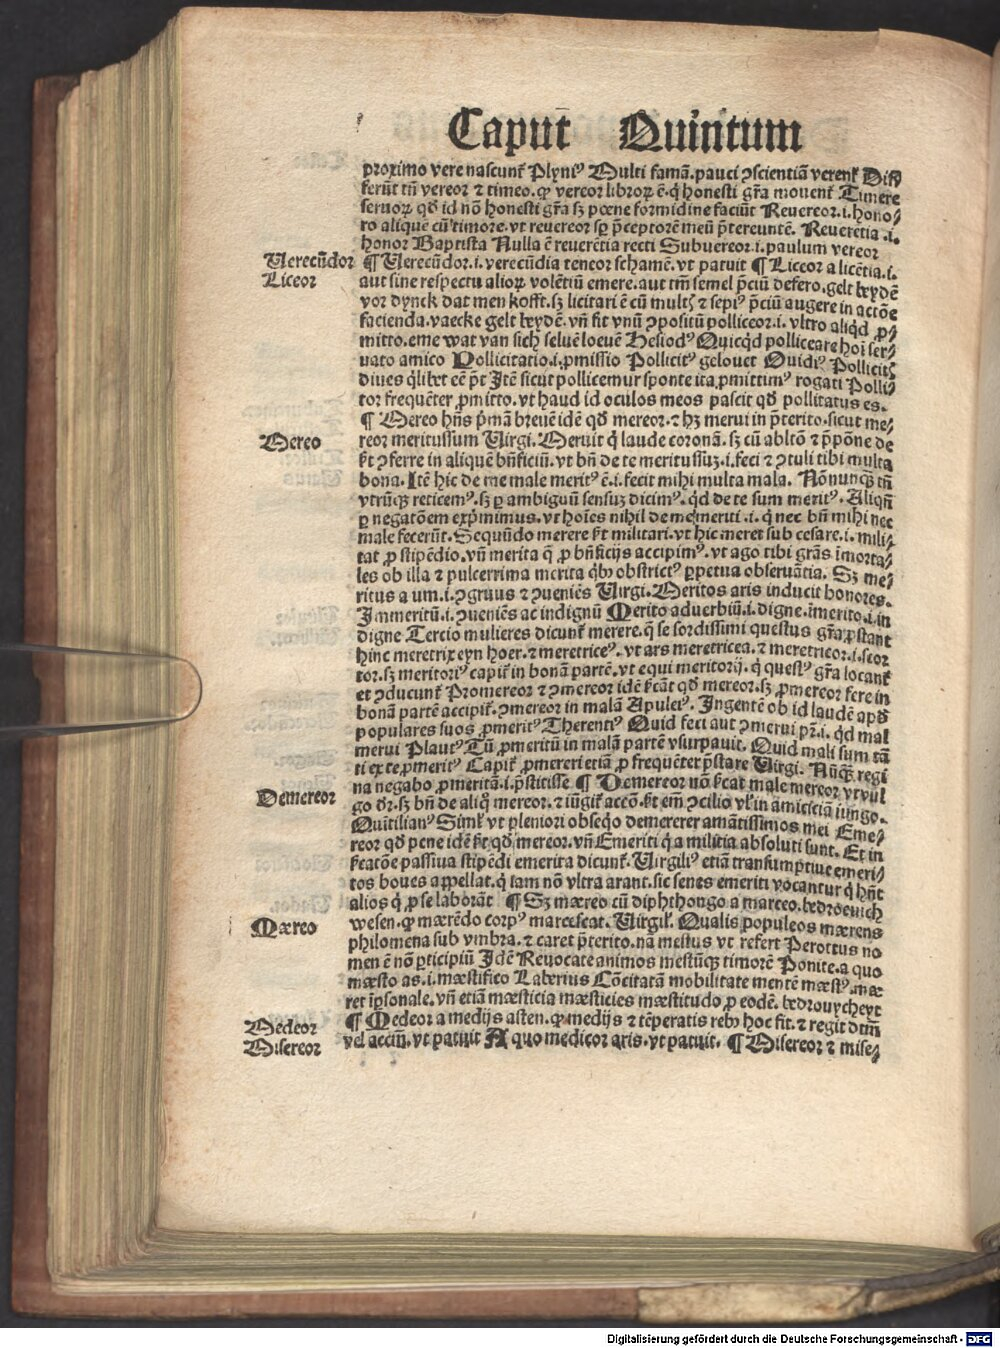 Caput̄ Quintum
proximo vere nascunt̄ Plyniꝰ Multi famā.pauci ↄscientiā verent̄ Dif
ferūt tn̄ vereor ⁊ timeo.ꝙ vereor libroꝝ ē.q̇ honesti gr̄a mouent̄ Timere
seruoꝝ qd̄ id nō honesti gr̄a sꝫ pœne formidine faciūt Reuereor.i.hono/
ro aliquē cū timore.vt reuereor sꝑ p̄ceptorē meū p̄tereuntē. Reuerētia .i.
honor Baptista Nulla ē reuerētia recti Subuereor.i.paulum vereor
Verecūdor
¶ Verecūdor.i.verecūdia teneor schamē.vt patuit ¶ Liceor a licētia.i.
Liceor
aut sine respectu alioꝝ volētiū emere.aut tm̄ semel p̄ciū defero.gelt beydē
vor dynck dat men kofft.sꝫ licitari ē cū multꝭ ⁊ sepiꝰ p̄ciū augere in actōe
facienda.vaecke gelt beydē.vn̄ fit vnū ↄpositū polliceor.i.vltro aliqḋ ꝓ/
mitto.eme wat van sich seluē louē Hesiodꝰ Quicqḋ polliceare hoī ser/
uato amico Pollicitatio.i.ꝓmissio Pollicitꝰ gelouet Ouidiꝰ Pollicitꝭ
diues qlibet eē pt̄ Itē sicut pollicemur sponte ita ꝓmittimꝰ rogati Polli/
tor frequēter ꝓmitto.vt haud id oculos meos pascit qd̄ pollitatus es.
¶ Mereo hn̄s p̄mā breuē idē qd̄ mereor.⁊ hꝫ merui in p̄terito.sicut me/
Mereo
reor meritussum Virgi.Meruit q̇ laude coronā. sꝫ cū abltō ⁊ p̄pōne de
ſt̄ ↄferre in aliquē bn̄ficiū.vt bn̄ de te meritussūꝫ.i.feci ⁊ ↄtuli tibi multa
bona.Itē hic de me male meritꝰ ē.i.fecit mihi multa mala. Nōnunqꝫ tn̄
vtrūqꝫ reticemꝰ.sꝫ ꝑ ambiguū sensuꝫ dicimꝰ.qḋ de te sum meritꝰ.Aliqn̄
ꝑ negatōem exp̄mimus.vt hoīes nihil de me meriti .i. q̇ nec bn̄ mihi nec
male fecerūt.Secqūdo merere ſt̄ militari.vt hic meret sub cesare.i.mili/
tat ꝓ stipēdio.vn̄ merita q̄ ꝓ bn̄ficijs accipimꝰ.vt ago tibi grās īmorta/
les ob illa ⁊ pulcerrima merita qb̄ꝰ obstrictꝰ ꝑpetua obseruātia. Sꝫ me/
ritus a um.i.ↄgruus ⁊ ↄueniēs Virgi.Meritos aris inducit honores.
Immeritū.i.ↄueniēs ac indignū Merito aduerbiū.i.digne.īmerito.i.in
digne Tercio mulieres dicunt̄ merere.q̄ se sordissimi questus gr̄a ꝓstant
hinc meretrix eyn hoer.⁊ meretriceꝰ.vt ars meretricea.⁊ meretricor.i.scor
tor.sꝫ meritoriꝰ capit̄ in bonā partē.vt equi meritorij.q̇ questꝰ gr̄a locant̄
et ↄducunt̄ Promereor ⁊ ↄmereor idē ſcāt qd̄ mereor.sꝫ ꝓmereor fere in
bonā partē accipit̄.ↄmereor in malā Apuleiꝰ. Ingentē ob id laudē apd̄
populares suos ꝓmeritꝰ Therentiꝰ Quid feci aut ↄmerui pr̄.i. qḋ mal
merui Plautꝰ Tū ꝓmeritū in malā partē vsurpauit. Quid mali sum tā
ti ex te ꝓmeritꝰ Capit̄ ꝓmereri etiā ꝓ frequēter p̄stare Virgi. Nūqꝫ regi
na negabo ꝓmeritā.i.p̄stitisse ¶ Demereor nō ſcat male mereor vt vul
Demereor
go dr̄.sꝫ bn̄ de aliqͦ mereor.⁊ iūgit̄ acctō.ſt̄ em̄ ↄcilio vl̓ in amiciciā iungo.
Quītilianꝰ Siml̓ vt pleniori obseqͦ demererer amātissimos mei Eme/
reor qd̄ pene idē ſt̄ qd̄ mereor.vn̄ Emeriti q̇ a militia absoluti sunt. Et in
ſcatōe passiua stipēdi emerita dicunt̄.Virgiliꝰ etiā transumptiue emeri/
tos boues appellat.q̇ iam nō vltra arant.sic senes emeriti vocantur q̇ hn̄t
alios q̇ ꝓ se laborāt ¶ Sꝫ mæreo cū diphthongo a marceo.bedroeuich
Mæreo
wesen.ꝙ mærēdo corpꝰ marcescat. Virgil̓. Qualis populeos mærens
philomena sub vmbra.⁊ caret p̄terito.nā mestus vt refert Perottus no
men ē nō ꝑticipiū Idē Reuocate animos mestūqꝫ timorē Ponite.a quo
mæsto as.i.mæstifico Laberius Cōcitatā mobilitate mentē mæstꝰ.mæ
ret īpsonale.vn̄ etiā mæsticia mæsticies mæstitudo ꝓ eodē. bedrouycheyt
Medeor
¶ Medeor a medijs asten.ꝙ medijs ⁊ tēperatis rebꝰ hoc fit.⁊ regit dtm̄
Misereor
vel acciū.vt patuit A quo medicor aris.vt patuit. ¶ Misereor ⁊ mise/
Digitalisierung gefördert durch die Deutsche Forschungsgemeinschaft - DFG